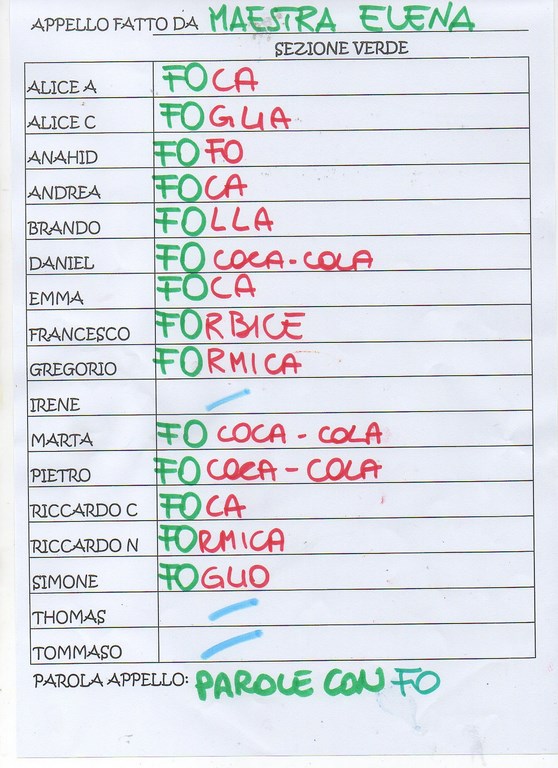 APPELLO FATTO DA MAESTRA ELENA
SEZIONE VERDE
ALICE A FOCA
ALICE C FOGLIA
ANAHID FOFO
ANDREA FOCA
BRANDO FOLLA
DANIEL FO COCA-COLA
EMMA FOCA
FRANCESCO FORBICE
GREGORIO FORMICA
IRENE
MARTA FO COCA - COLA
PIETRO FO COCA - COLA
RICCARDO C FOCA
RICCARDO N FORMICA
SIMONE FOGLIO
THOMAS
TOMMASO
PAROLA APPELLO: PAROLE CON FO